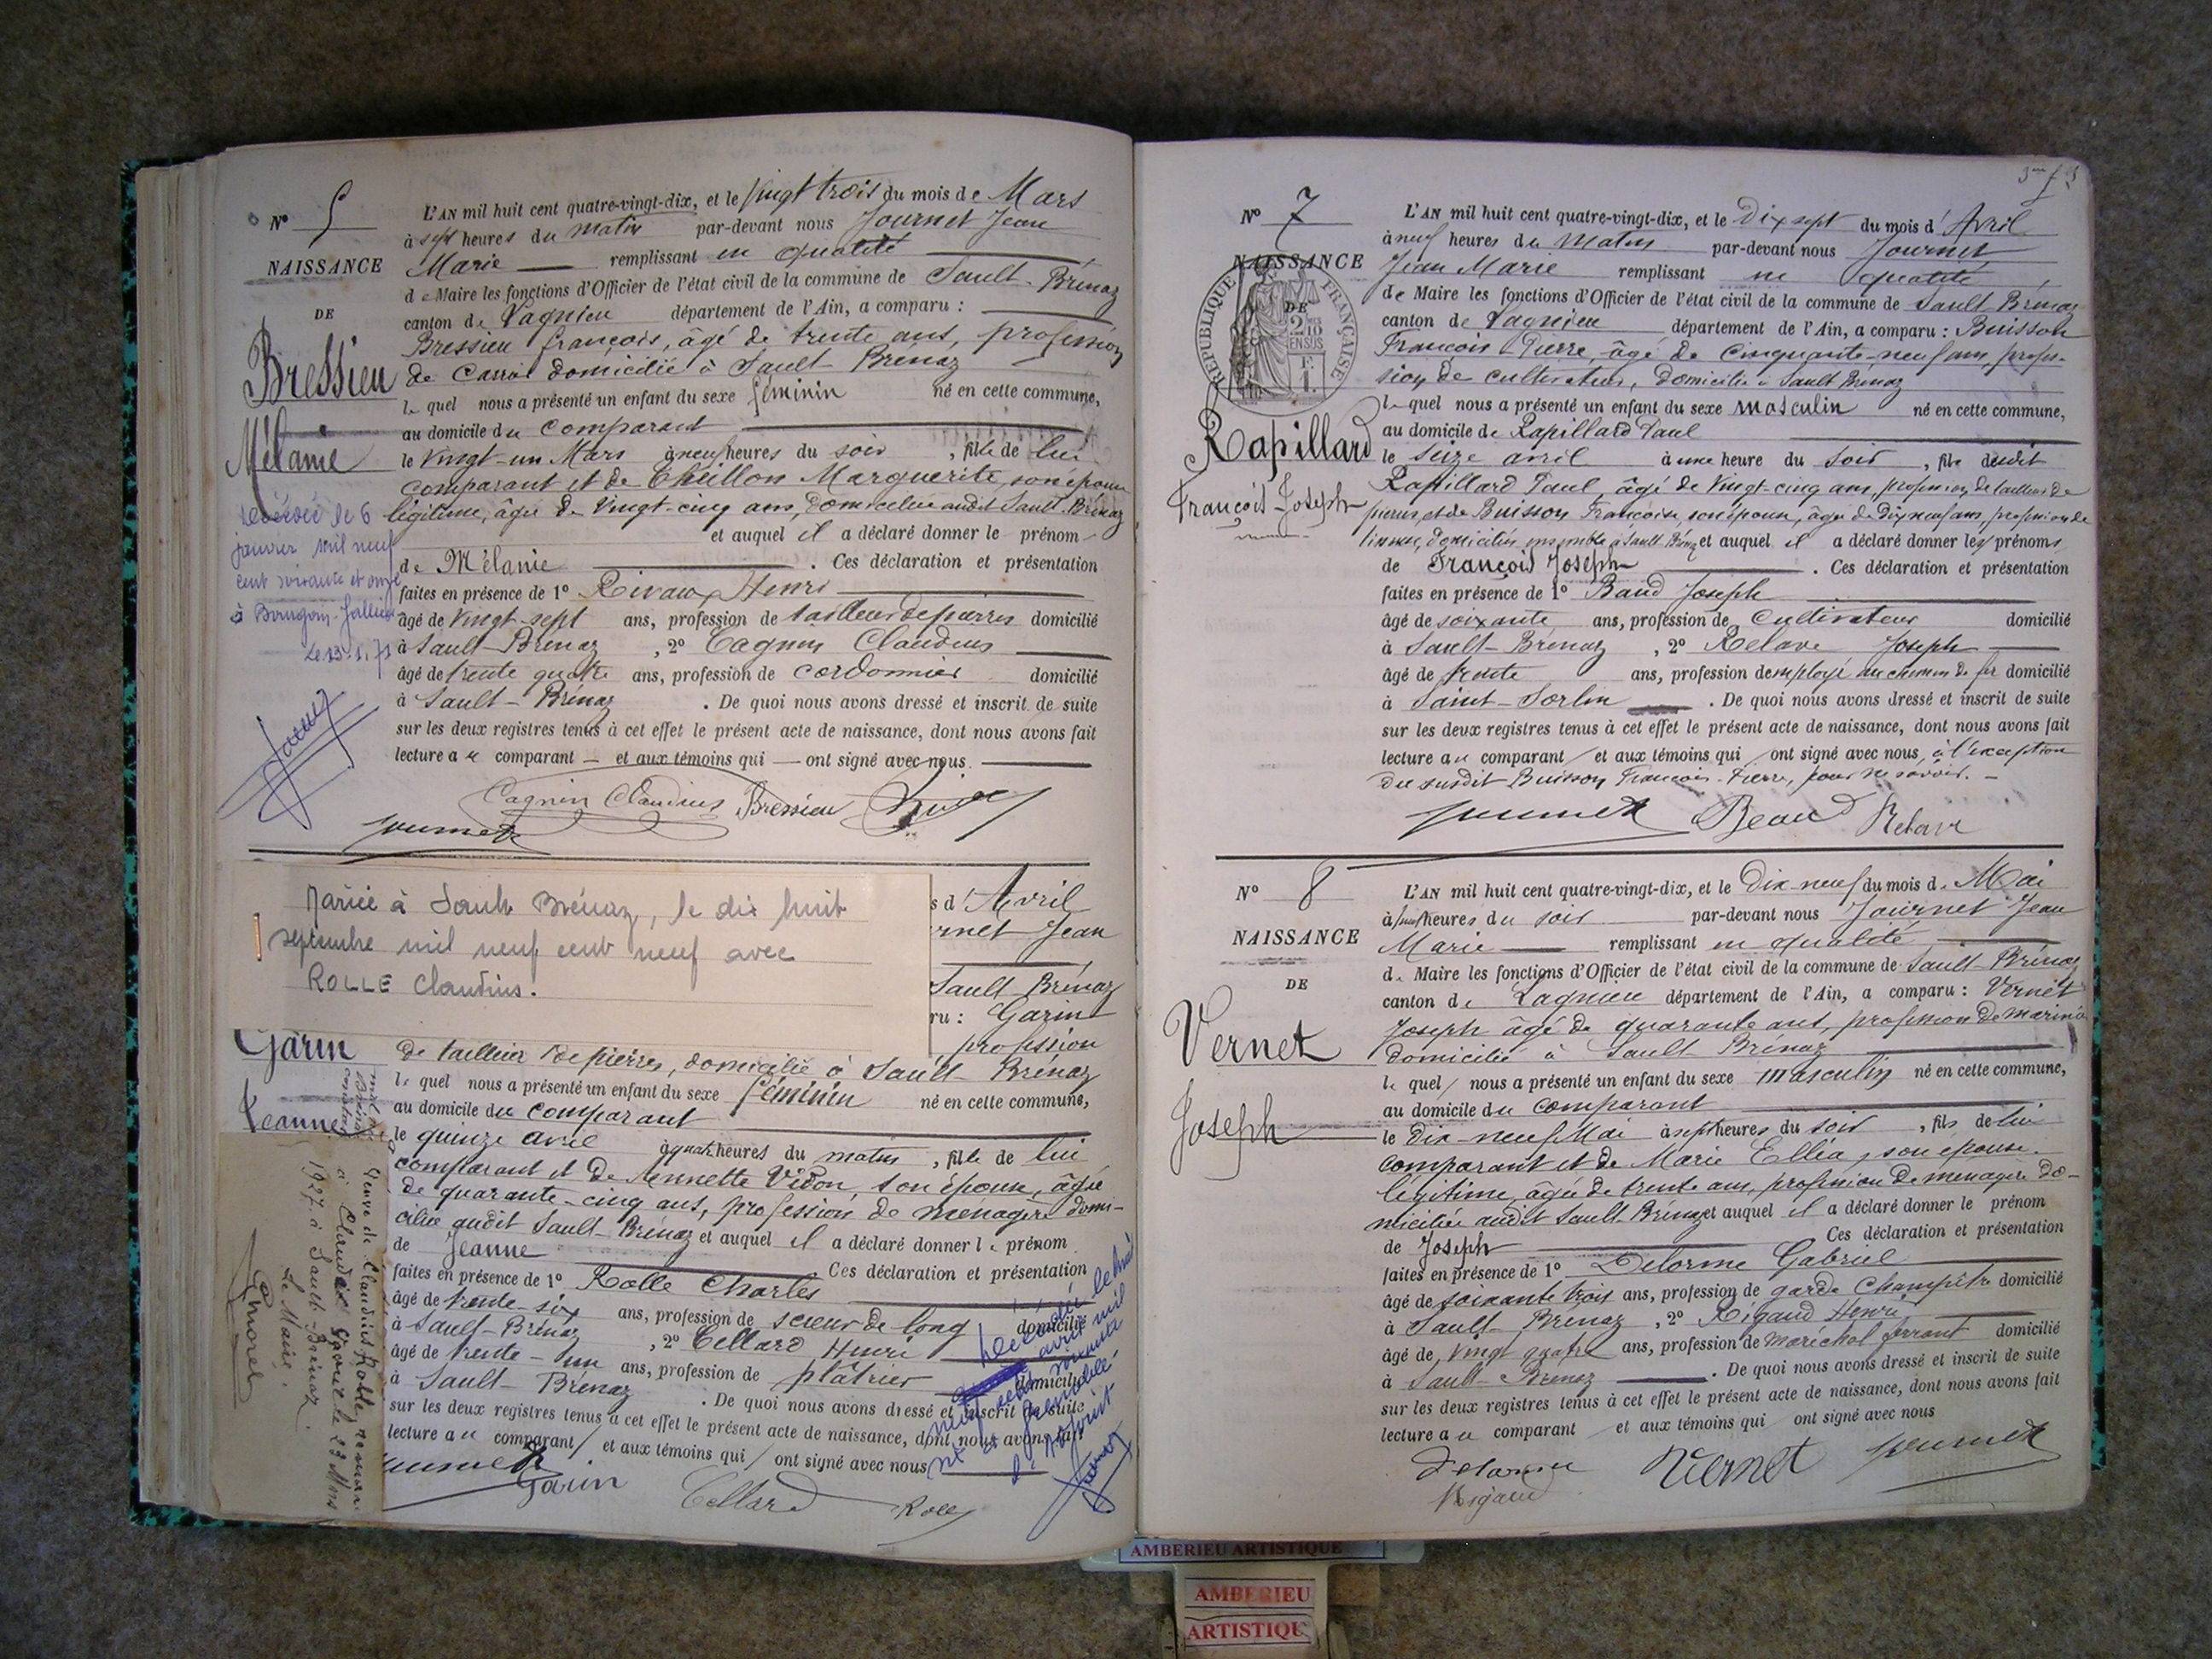 N° 5
NAISSANCE
DE
Bressieu
Mélanie
décédée le 6
janvier mil neuf
cent soixante et onze
à Bourgoin-Jallieu
Le 13.1.71
L'AN mil huit cent quatre-vingt-dix, et le Vingt trois du mois de Mars
à sept heures du matin par-devant nous Journet Jean
Marie remplissant en qualité
de Maire les fonctions d'Officier de l'état civil de la commune de Sault-Brénaz
canton de Lagnieu département de l'Ain, a comparu :
Bressieu françois, âgé de trente ans, profession
de domicilié à Sault-Brénaz
le quel nous a présenté un enfant du sexe féminin né en cette commune,
au domicile du comparant
le Vingt-un Mars à neuf heures du soir, fille de lui
comparant et de Marguerite, son épouse
légitime, âgée de Vingt-cinq ans, domiciliée audit Sault-Brénaz
et auquel il a déclaré donner le prénom
de Mélanie . Ces déclaration et présentation
faites en présence de 1° Rivaux Henri
âgé de Vingt-sept ans, profession de tailleur de pierres domicilié
à Sault-Brénaz, 2° Cagnin Claudius
âgé de trente quatre ans, profession de cordonnier domicilié
à Sault-Brénaz . De quoi nous avons dressé et inscrit de suite
sur les deux registres tenus à cet effet le présent acte de naissance, dont nous avons fait
lecture au comparant et aux témoins qui ont signé avec nous.
Cagnin Claudius Bressieu
Journet
Mariée à Sault Brénaz, le dix huit
septembre mil neuf cent neuf avec
ROLLE Claudius.
Garin
Jeanne
s d'Avril
rnet Jean
Sault Brénaz
ru : Garin
profession
de tailleur de pierres, domicilié à Sault-Brénaz
le quel nous a présenté un enfant du sexe féminin né en cette commune,
au domicile du comparant
le quinze avril à quatre heures du matin, fille de lui
comparant et de Annette Vidon, son épouse, âgée
de quarante-cinq ans, profession de ménagère domi-
ciliée audit Sault-Brénaz et auquel il a déclaré donner le prénom
de Jeanne . Ces déclaration et présentation
faites en présence de 1° Rolle Charles
âgé de trente-six ans, profession de scieur de long domicilié
à Sault-Brénaz, 2° Cellard Henri
âgé de trente-un ans, profession de plâtrier domicilié
à Sault-Brénaz . De quoi nous avons dressé et inscrit de suite
sur les deux registres tenus à cet effet le présent acte de naissance, dont nous avons fait
lecture au comparant et aux témoins qui ont signé avec nous
Journet Garin Cellard Rolle
Veuve de Claudius Rolle, remariée
à Claudius le 23 Mars
1927 à Sault-Brénaz.
Le Maire,
Décédée le huit
avril mil
neuf cent soixante
N° 7
NAISSANCE
DE
RÉPUBLIQUE FRANÇAISE
2/10 EN SUS
Rapillard
François-Joseph
L'AN mil huit cent quatre-vingt-dix, et le Dix sept du mois d'Avril
à neuf heures du Matin par-devant nous Journet
Jean Marie remplissant en qualité
de Maire les fonctions d'Officier de l'état civil de la commune de Sault Brénaz
canton de Lagnieu département de l'Ain, a comparu : Buisson
François Pierre, âgé de Cinquante-neuf ans, profes-
sion de cultivateur, domicilié à Sault Brénaz
le quel nous a présenté un enfant du sexe masculin né en cette commune,
au domicile de Rapillard Paul
le seize avril à une heure du soir, fils dudit
Rapillard Paul, âgé de Vingt-cinq ans, profession de tailleur de
pierres, et de Buisson Françoise, son épouse, âgée de Dix neuf ans, profession de
domiciliés ensemble à Sault-Brénaz et auquel il a déclaré donner les prénoms
de François Joseph . Ces déclaration et présentation
faites en présence de 1° Baud Joseph
âgé de soixante ans, profession de Cultivateur domicilié
à Sault-Brénaz, 2° Relave Joseph
âgé de trente ans, profession d'employé au chemin de fer domicilié
à Saint-Sorlin . De quoi nous avons dressé et inscrit de suite
sur les deux registres tenus à cet effet le présent acte de naissance, dont nous avons fait
lecture au comparant et aux témoins qui ont signé avec nous, à l'exception
du susdit Buisson François-Pierre, pour ne savoir.
Journet Beaud Relave
N° 8
NAISSANCE
DE
Vernet
Joseph
L'AN mil huit cent quatre-vingt-dix, et le Dix-neuf du mois de Mai
à heures du soir par-devant nous Journet Jean
Marie remplissant en qualité
de Maire les fonctions d'Officier de l'état civil de la commune de Sault-Brénaz
canton de Lagnieu département de l'Ain, a comparu : Vernet
Joseph âgé de quarante ans, profession de marinier
domicilié à Sault Brénaz
le quel nous a présenté un enfant du sexe masculin né en cette commune,
au domicile du comparant
le dix-neuf Mai à sept heures du soir, fils de lui
comparant et de Marie Elléa, son épouse
légitime, âgée de trente ans, profession de ménagère do-
miciliée audit Sault-Brénaz et auquel il a déclaré donner le prénom
de Joseph Ces déclaration et présentation
faites en présence de 1° Delorme Gabriel
âgé de soixante trois ans, profession de garde Champêtre domicilié
à Sault-Brénaz, 2° Rigaud Henri
âgé de vingt quatre ans, profession de maréchal ferrant domicilié
à Sault-Brénaz . De quoi nous avons dressé et inscrit de suite
sur les deux registres tenus à cet effet le présent acte de naissance, dont nous avons fait
lecture au comparant et aux témoins qui ont signé avec nous
Delorme Vernet Journet
Rigaud
AMBERIEU ARTISTIQUE
AMBERIEU
ARTISTIQU